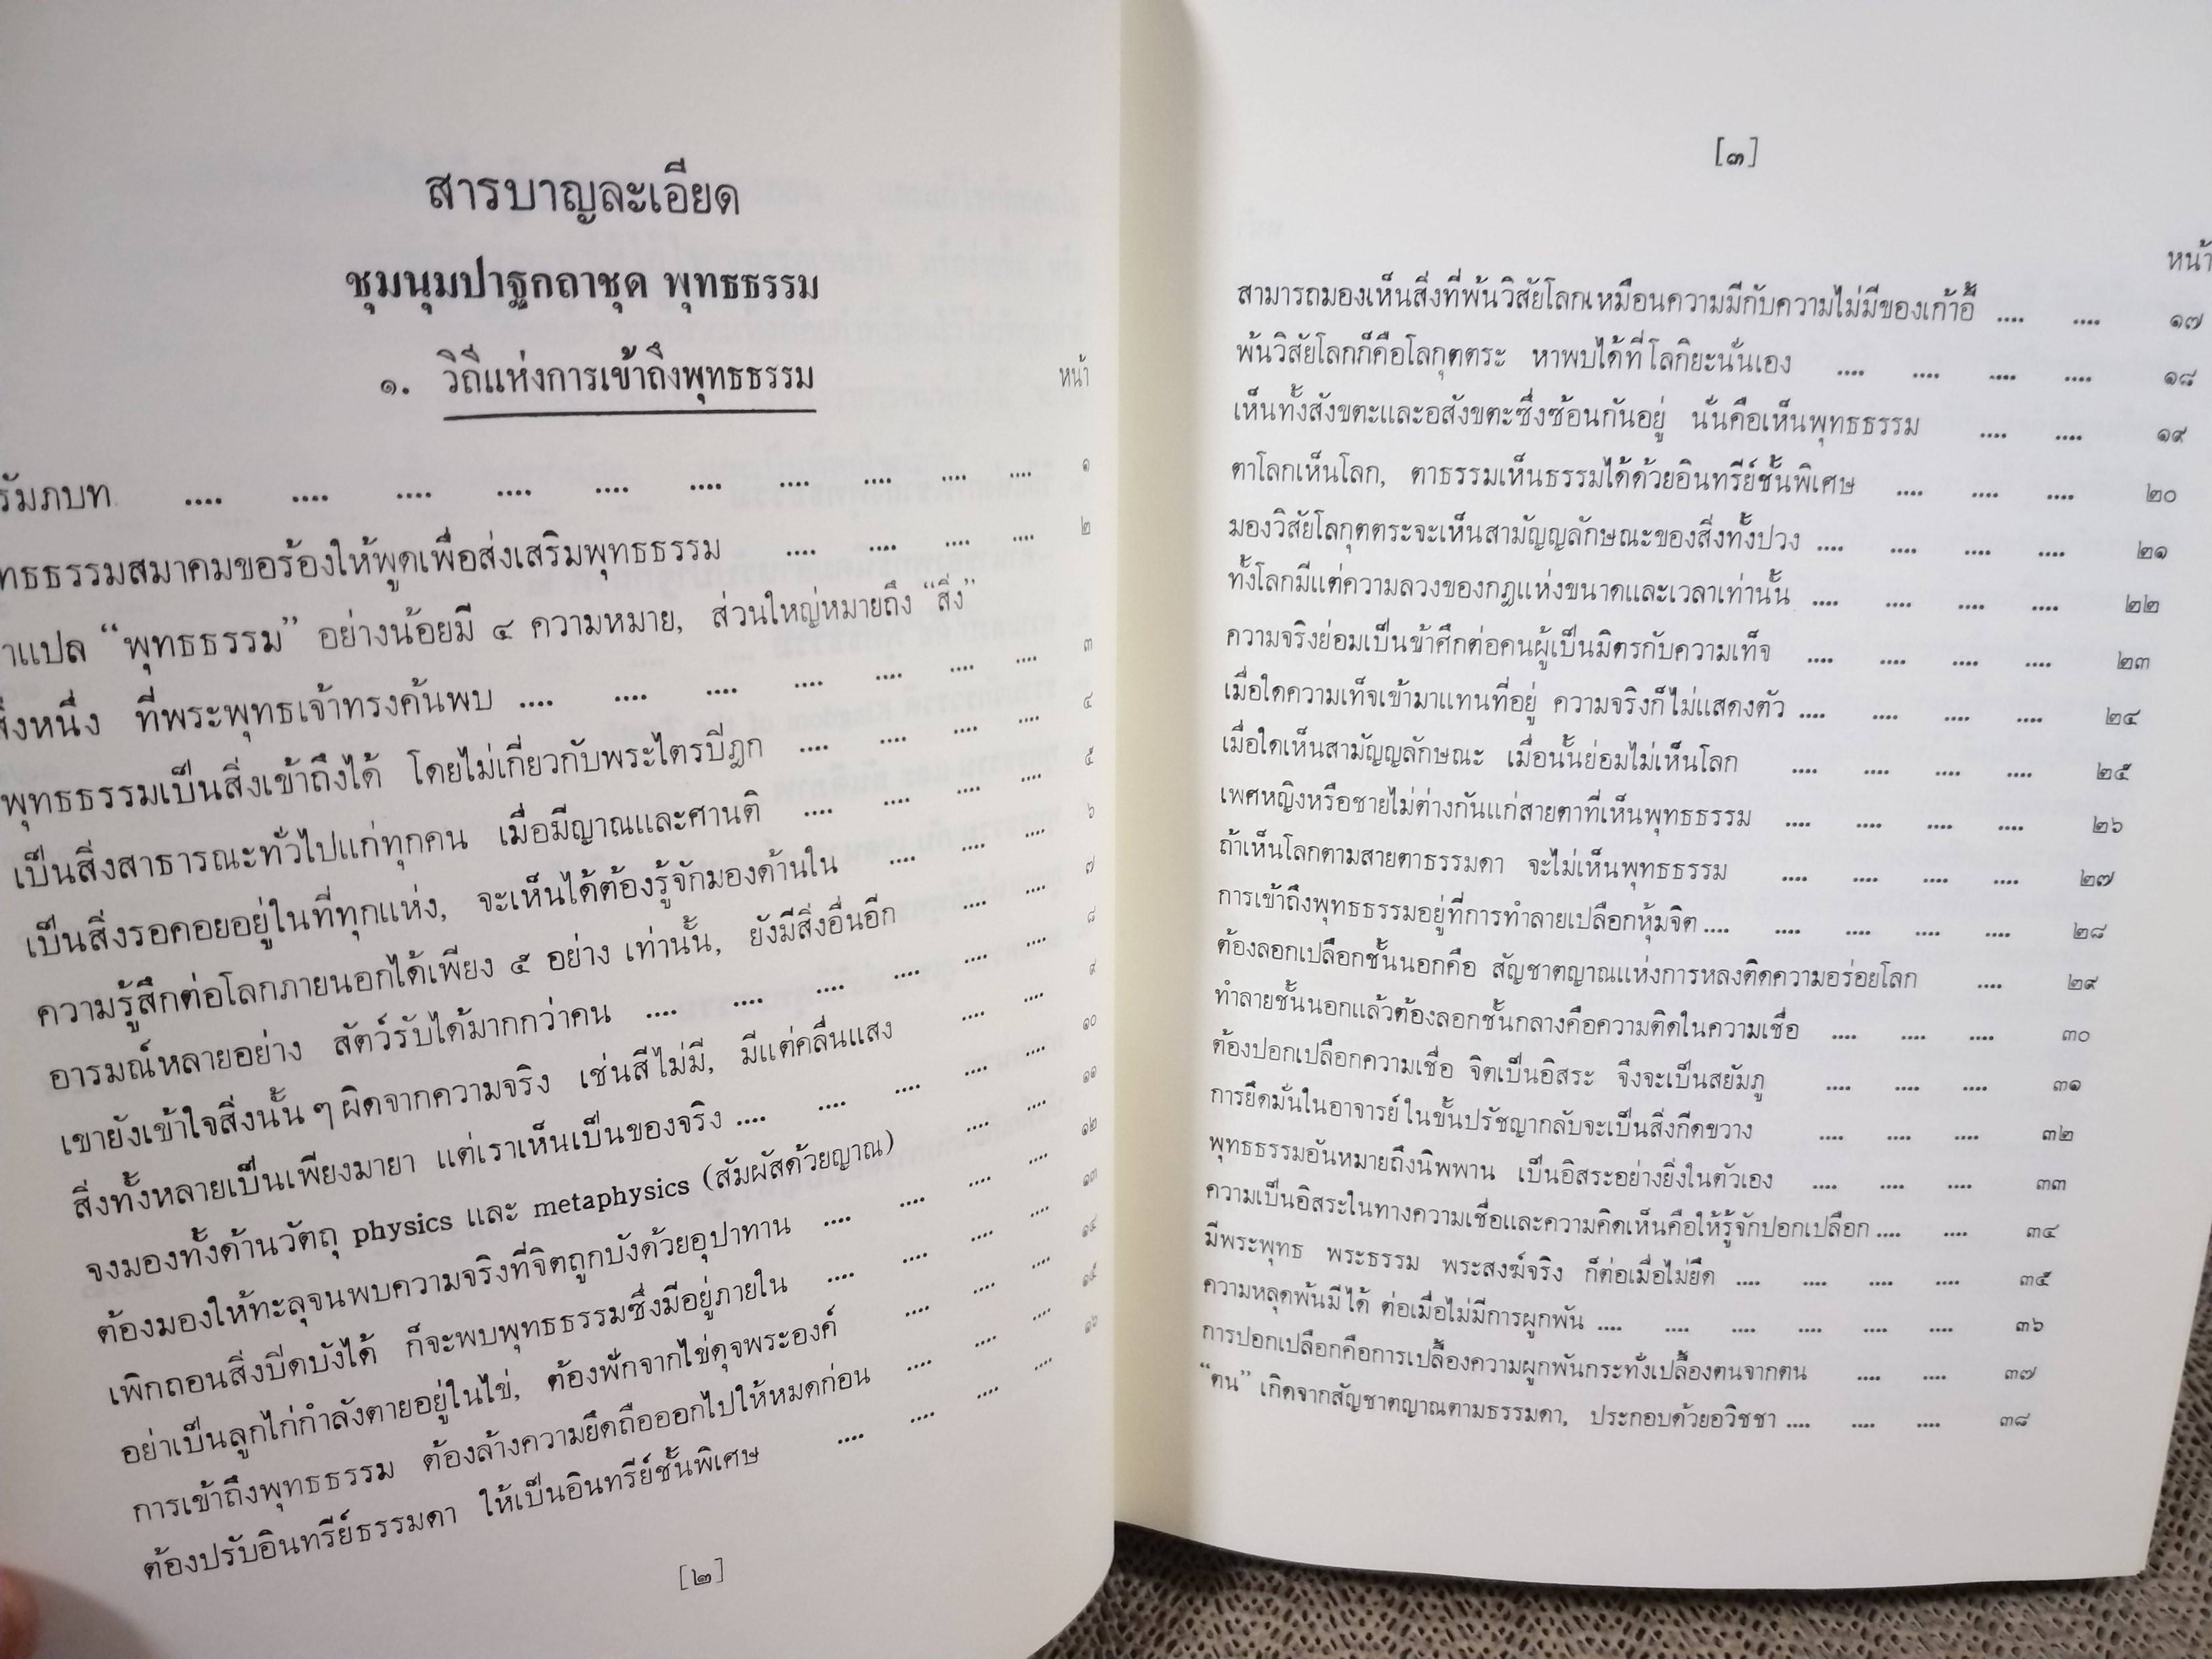 สารบาญละเอียด
ชุมนุมปาฐกถาชุด พุทธธรรม
๑. วิถีแห่งการเข้าถึงพุทธธรรม
หน้า
รัมภบท .... .... .... .... .... .... .... .... .... ๑
ทธธรรมสมาคมขอร้องให้พูดเพื่อส่งเสริมพุทธธรรม .... .... .... .... ๒
าแปล “พุทธธรรม” อย่างน้อยมี ๔ ความหมาย, ส่วนใหญ่หมายถึง “สิ่ง”
สิ่งหนึ่ง ที่พระพุทธเจ้าทรงค้นพบ .... .... .... .... .... .... .... ๓
พุทธธรรมเป็นสิ่งเข้าถึงได้ โดยไม่เกี่ยวกับพระไตรปิฎก .... .... .... .... ๔
เป็นสิ่งสาธารณะทั่วไปแก่ทุกคน เมื่อมีญาณและศานติ .... .... .... .... ๕
เป็นสิ่งรอคอยอยู่ในที่ทุกแห่ง, จะเห็นได้ต้องรู้จักมองด้านใน .... .... .... ๖
ความรู้สึกต่อโลกภายนอกได้เพียง ๕ อย่าง เท่านั้น, ยังมีสิ่งอื่นอีก .... .... ๗
อารมณ์หลายอย่าง สัตว์รับได้มากกว่าคน .... .... .... .... .... .... ๘
เขายังเข้าใจสิ่งนั้น ๆ ผิดจากความจริง เช่นสีไม่มี, มีแต่คลื่นแสง .... .... ๙
สิ่งทั้งหลายเป็นเพียงมายา แต่เราเห็นเป็นของจริง .... .... .... .... .... ๑๐
จงมองทั้งด้านวัตถุ physics และ metaphysics (สัมผัสด้วยญาณ) .... .... ๑๑
ต้องมองให้ทะลุจนพบความจริงที่จิตถูกบังด้วยอุปาทาน .... .... .... .... ๑๒
เพิกถอนสิ่งปิดบังได้ ก็จะพบพุทธธรรมซึ่งมีอยู่ภายใน .... .... .... .... ๑๓
อย่าเป็นลูกไก่กำลังตายอยู่ในไข่, ต้องฟักจากไข่ดุจพระองค์ .... .... .... ๑๔
การเข้าถึงพุทธธรรม ต้องล้างความยึดถือออกไปให้หมดก่อน .... .... .... ๑๕
ต้องปรับอินทรีย์ธรรมดา ให้เป็นอินทรีย์ชั้นพิเศษ .... .... .... .... ๑๖
[๒]
[๓]
หน้า
สามารถมองเห็นสิ่งที่พ้นวิสัยโลกเหมือนความมีกับความไม่มีของเก้าอี้ .... .... ๑๗
พ้นวิสัยโลกก็คือโลกุตตระ หาพบได้ที่โลกิยะนั่นเอง .... .... .... .... ๑๘
เห็นทั้งสังขตะและอสังขตะซึ่งซ้อนกันอยู่ นั่นคือเห็นพุทธธรรม .... .... ๑๙
ตาโลกเห็นโลก, ตาธรรมเห็นธรรมได้ด้วยอินทรีย์ชั้นพิเศษ .... .... .... ๒๐
มองวิสัยโลกุตตระจะเห็นสามัญญลักษณะของสิ่งทั้งปวง .... .... .... .... ๒๑
ทั้งโลกมีแต่ความลวงของกฎแห่งขนาดและเวลาเท่านั้น .... .... .... .... ๒๒
ความจริงย่อมเป็นข้าศึกต่อคนผู้เป็นมิตรกับความเท็จ .... .... .... .... ๒๓
เมื่อใดความเท็จเข้ามาแทนที่อยู่ ความจริงก็ไม่แสดงตัว .... .... .... .... ๒๔
เมื่อใดเห็นสามัญญลักษณะ เมื่อนั้นย่อมไม่เห็นโลก .... .... .... .... ๒๕
เพศหญิงหรือชายไม่ต่างกันแก่สายตาที่เห็นพุทธธรรม .... .... .... .... ๒๖
ถ้าเห็นโลกตามสายตาธรรมดา จะไม่เห็นพุทธธรรม .... .... .... .... ๒๗
การเข้าถึงพุทธธรรมอยู่ที่การทำลายเปลือกหุ้มจิต .... .... .... .... .... ๒๘
ต้องลอกเปลือกชั้นนอกคือ สัญชาตญาณแห่งการหลงติดความอร่อยโลก .... ๒๙
ทำลายชั้นนอกแล้วต้องลอกชั้นกลางคือความติดในความเชื่อ .... .... .... ๓๐
ต้องปอกเปลือกความเชื่อ จิตเป็นอิสระ จึงจะเป็นสยัมภู .... .... .... ๓๑
การยึดมั่นในอาจารย์ในขั้นปรัชญากลับจะเป็นสิ่งกีดขวาง .... .... .... ๓๒
พุทธธรรมอันหมายถึงนิพพาน เป็นอิสระอย่างยิ่งในตัวเอง .... .... .... ๓๓
ความเป็นอิสระในทางความเชื่อและความคิดเห็นคือให้รู้จักปอกเปลือก .... .... ๓๔
มีพระพุทธ พระธรรม พระสงฆ์จริง ก็ต่อเมื่อไม่ยึด .... .... .... .... ๓๕
ความหลุดพ้นมีได้ ต่อเมื่อไม่มีการผูกพัน .... .... .... .... .... .... ๓๖
การปอกเปลือกคือการเปลื้องความผูกพันกระทั่งเปลื้องตนจากตน .... .... ๓๗
“ตน” เกิดจากสัญชาตญาณตามธรรมดา, ประกอบด้วยอวิชชา .... .... .... ๓๘